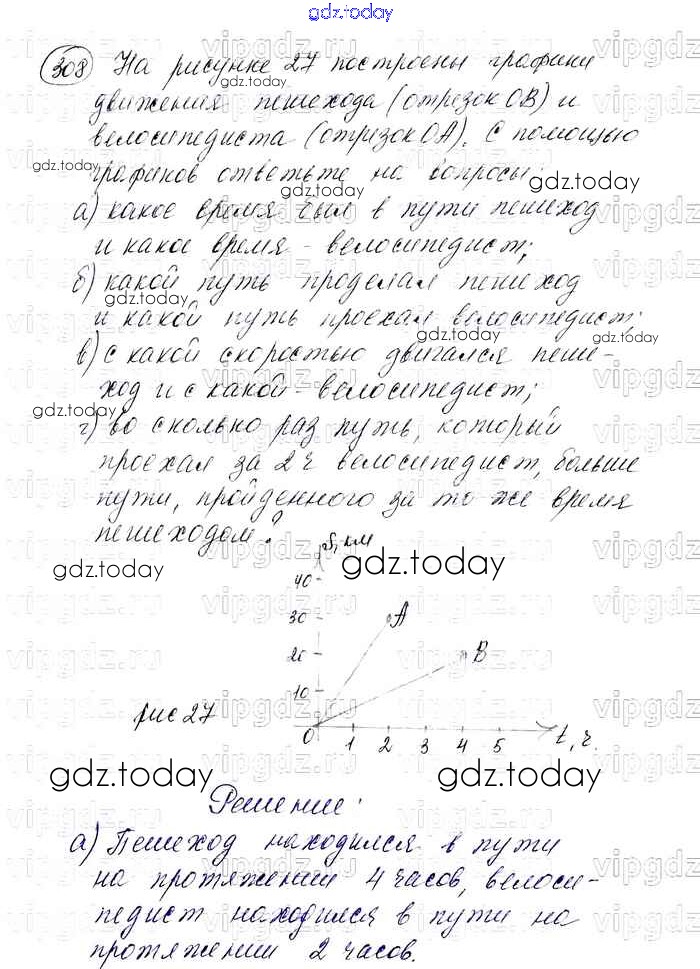 gdz.today
308 На рисунке 27 построены графики
движения пешехода (отрезок ОВ) и
велосипедиста (отрезок ОА). С помощью
графиков ответьте на вопросы:
а) какое время был в пути пешеход
и какое время - велосипедист;
б) какой путь проделал пешеход
и какой путь проехал велосипедист;
в) с какой скоростью двигался пеше-
ход и с какой - велосипедист;
г) во сколько раз путь, который
проехал за 2 ч велосипедист, больше
пути, пройденного за то же время
пешеходом?
S, км
40
30 А
20 В
10
рис 27
0 1 2 3 4 5 t, ч.
gdz.today
Решение:
а) Пешеход находился в пути
на протяжении 4 часов, велоси-
педист находился в пути на
протяжении 2 часов.